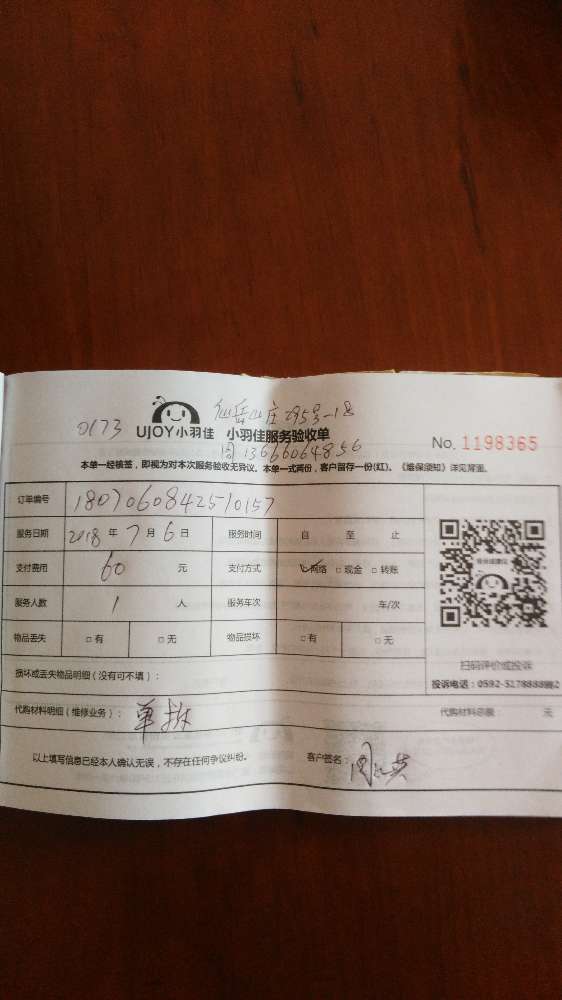 仙岳山庄295号-1
0173
UJOY小羽佳 小羽佳服务验收单
周 13666064856
No. 1198365
本单一经核签，即视为对本次服务验收无异议。本单一式两份，客户留存一份(红)。《维保须知》详见背面。
订单编号 1807060842510157
服务日期 2018 年 7 月 6 日 服务时间 自 至 止
支付费用 60 元 支付方式 ☑网络 □现金 □转账
服务人数 1 人 服务车次 车/次
物品丢失 □有 □无 物品损坏 □有 □无
扫码评价或投诉
投诉电话：0592-5178888转2
损坏或丢失物品明细（没有可不填）：
代购材料明细（维修业务）： 单拆 代购材料总额： 元
以上填写信息已经本人确认无误，不存在任何争议纠纷。 客户签名：